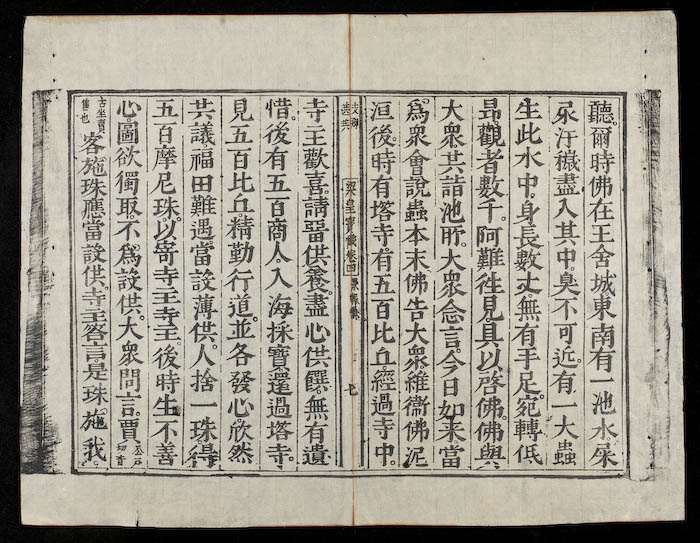 聽。爾時佛在王舍城東南有一池水。屎
尿汙穢盡入其中。臭不可近。有一大蟲
生此水中。身長數丈。無有手足。宛轉低
昂。觀者數千。阿難往見具以啓佛。佛與
大眾。共詣池所。大眾念言。今日如来當
爲眾會說蟲本末。佛告大眾。維衛佛泥
洹後。時有塔寺。有五百比丘。經過寺中。
梁皇寶懺卷四 七
寺主歡喜。請畱供養。盡心供饌。無有遺
惜。後有五百商人。入海採寶。還過塔寺。
見五百比丘精勤行道。並各發心欣然
共議福田難遇。當設薄供。人捨一珠。得
五百摩尼珠。以寄寺主。寺主後時生不善
心。圖欲獨取。不爲設供。大眾問言。賈
古坐賣
售也
客施珠應當設供。寺主答言是珠施我。